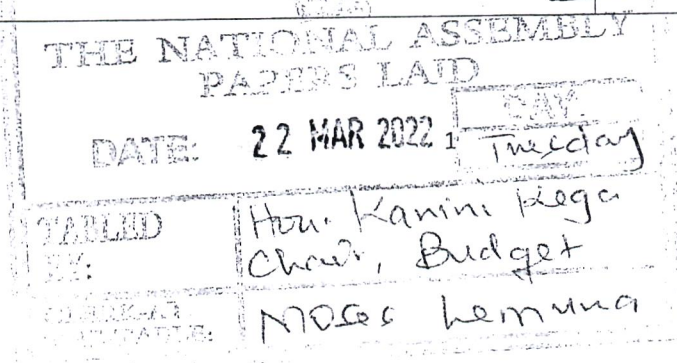 THE NATIONAL ASSEMBLY
PAPERS LAID
DATE: 22 MAR 2022 1
DAY
Tuesday
TABLED
BY:
Hon. Kanini Kega
Chair, Budget
CLERK-AT
THE-TABLE:
Moses Lemuna